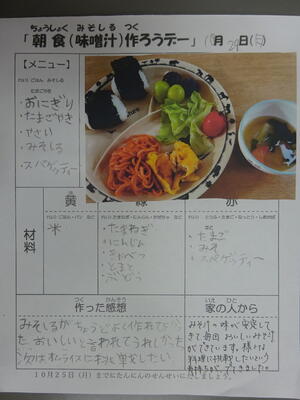 ちょうしょく みそしる つく
「朝食(味噌汁)作ろうデー」 月24日(日)
【メニュー】
おにぎり
たまごやき
やさい
みそしる
スパゲッティー
黄
緑
赤
材料
米
たまねぎ
にんじん
きゃべつ
とまと
ぶどう
たまご
みそ
スパゲッティー
つく かんそう
作った感想
いえ ひと
家の人から
みそしるがちょうどよく作れてよかっ
た。おいしいと言われてうれしかった。
次はオムライスに挑戦したい。
みそ汁の味が安定して
きて毎回おいしいみそ汁
ができています。様々な
料理に挑戦したいという
気持ちがでてきました。
10月25日(月)までにたんにんのせんせいにだしましょう。